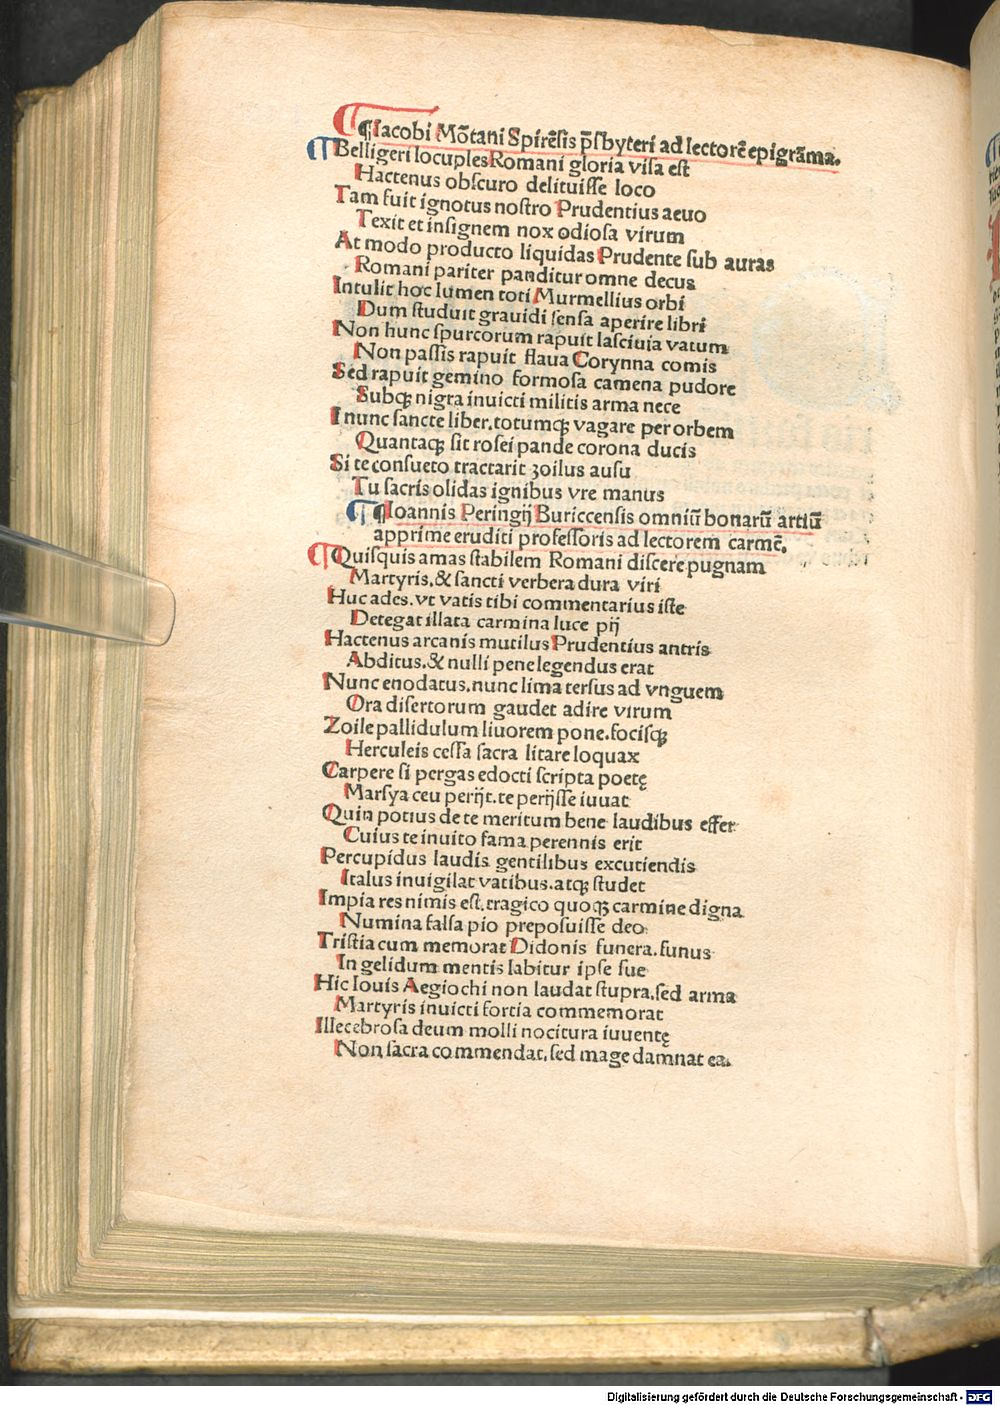 ¶Iacobi Mōtani Spirēsis p̄sbyteri ad lectorē epigrāma.
Belligeri locuples Romani gloria visa est
Hactenus obscuro delituisse loco
Tam fuit ignotus nostro Prudentius aeuo
Texit et insignem nox odiosa virum
At modo producto liquidas Prudente sub auras
Romani pariter panditur omne decus
Intulit hoc lumen toti Murmellius orbi
Dum studuit grauidi sensa aperire libri
Non hunc spurcorum rapuit lasciuia vatum
Non passis rapuit flaua Corynna comis
Sed rapuit gemino formosa camena pudore
Subqꝫ nigra inuicti militis arma nece
I nunc sancte liber, totumqꝫ vagare per orbem
Quantaqꝫ sit rosei pande corona ducis
Si te consueto tractarit zoilus ausu
Tu sacris olidas ignibus vre manus
¶Ioannis Peringij Buriccensis omniū bonarū artiū
apprime eruditi professoris ad lectorem carmē.
Quisquis amas stabilem Romani discere pugnam
Martyris, & sancti verbera dura viri
Huc ades. vt vatis tibi commentarius iste
Detegat illata carmina luce pij
Hactenus arcanis mutilus Prudentius antris
Abditus. & nulli pene legendus erat
Nunc enodatus, nunc lima tersus ad vnguem
Ora disertorum gaudet adire virum
Zoile pallidulum liuorem pone. focisqꝫ
Herculeis cessa sacra litare loquax
Carpere si pergas edocti scripta poetę
Marsya ceu perijt, te perijsse iuuat
Quin potius de te meritum bene laudibus effer
Cuius te inuito fama perennis erit
Percupidus laudis gentilibus excutiendis
Italus inuigilat vatibus. atqꝫ studet
Impia res nimis est, tragico quoqꝫ carmine digna
Numina falsa pio preposuisse deo
Tristia cum memorat Didonis funera. funus
In gelidum mentis labitur ipse sue
Hic Iouis Aegiochi non laudat stupra, sed arma
Martyris inuicti fortia commemorat
Illecebrosa deum molli nocitura iuuentę
Non sacra commendat, sed mage damnat ea.
Digitalisierung gefördert durch die Deutsche Forschungsgemeinschaft - DFG